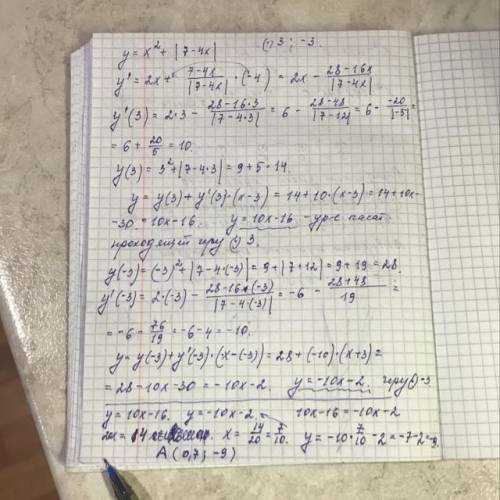 y = x² + |7-4x|    (·) 3; -3.
y' = 2x + (7-4x)/|7-4x| · (-4) = 2x - (28-16x)/|7-4x|
y'(3) = 2·3 - (28-16·3)/|7-4·3| = 6 - (28-48)/|7-12| = 6 - (-20)/|-5| =
= 6 + 20/5 = 10.
y(3) = 3² + |7-4·3| = 9 + 5 = 14.
y = y(3) + y'(3)·(x-3) = 14 + 10·(x-3) = 14 + 10x -
-30 = 10x - 16. y = 10x - 16 - ур-е касат.
проходящей при (·) 3.
y(-3) = (-3)² + |7-4·(-3)| = 9 + |7+12| = 9 + 19 = 28.
y'(-3) = 2·(-3) - (28-16·(-3))/|7-4·(-3)| = -6 - (28+48)/19 =
= -6 - 76/19 = -6 - 4 = -10.
y = y(-3) + y'(-3)·(x-(-3)) = 28 + (-10)·(x+3) =
= 28 - 10x - 30 = -10x - 2. y = -10x - 2. при (·) -3
y = 10x - 16. y = -10x - 2. 10x - 16 = -10x - 2
= 14 x = 14/20 = 7/10. y = -10·7/10 - 2 = -7 - 2 = -9
A (0,7; -9)